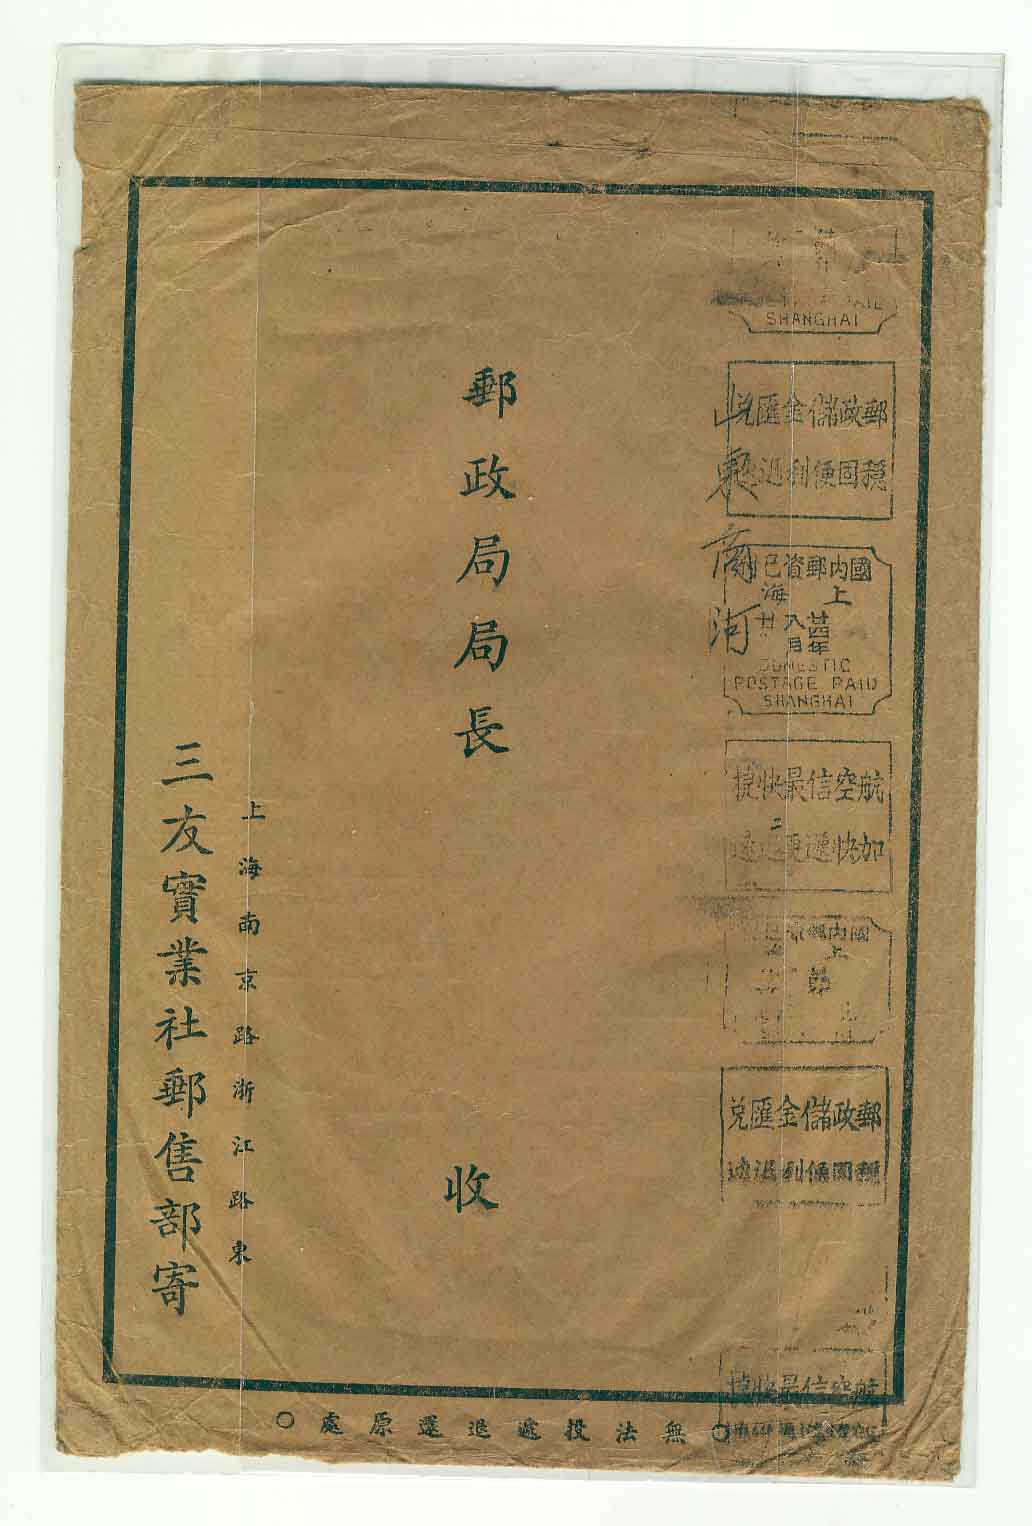 SHANGHAI
郵政儲金匯兌
穩固便利迅
山東商河
國內郵資已
上海
廿四年
八月
DOMESTIC
POSTAGE PAID
SHANGHAI
航空信最快捷
加快遞更迅速
國內郵資已
上
郵政儲金匯兌
穩固便利迅速
航空信最快捷
郵政局局長
收
上海南京路浙江路東
三友實業社郵售部寄
○無法投遞退還原處○